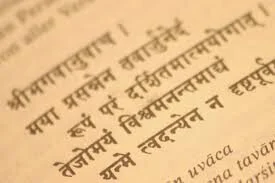 allen
श्रीभगवानुवाच ।
मया प्रसन्नेन तवार्जुनेदं
रूपं परं दर्शितमात्मयोगात् ।
तेजोमयं विश्वमनन्तमाद्यं
यन्मे त्वदन्येन न
uvāca